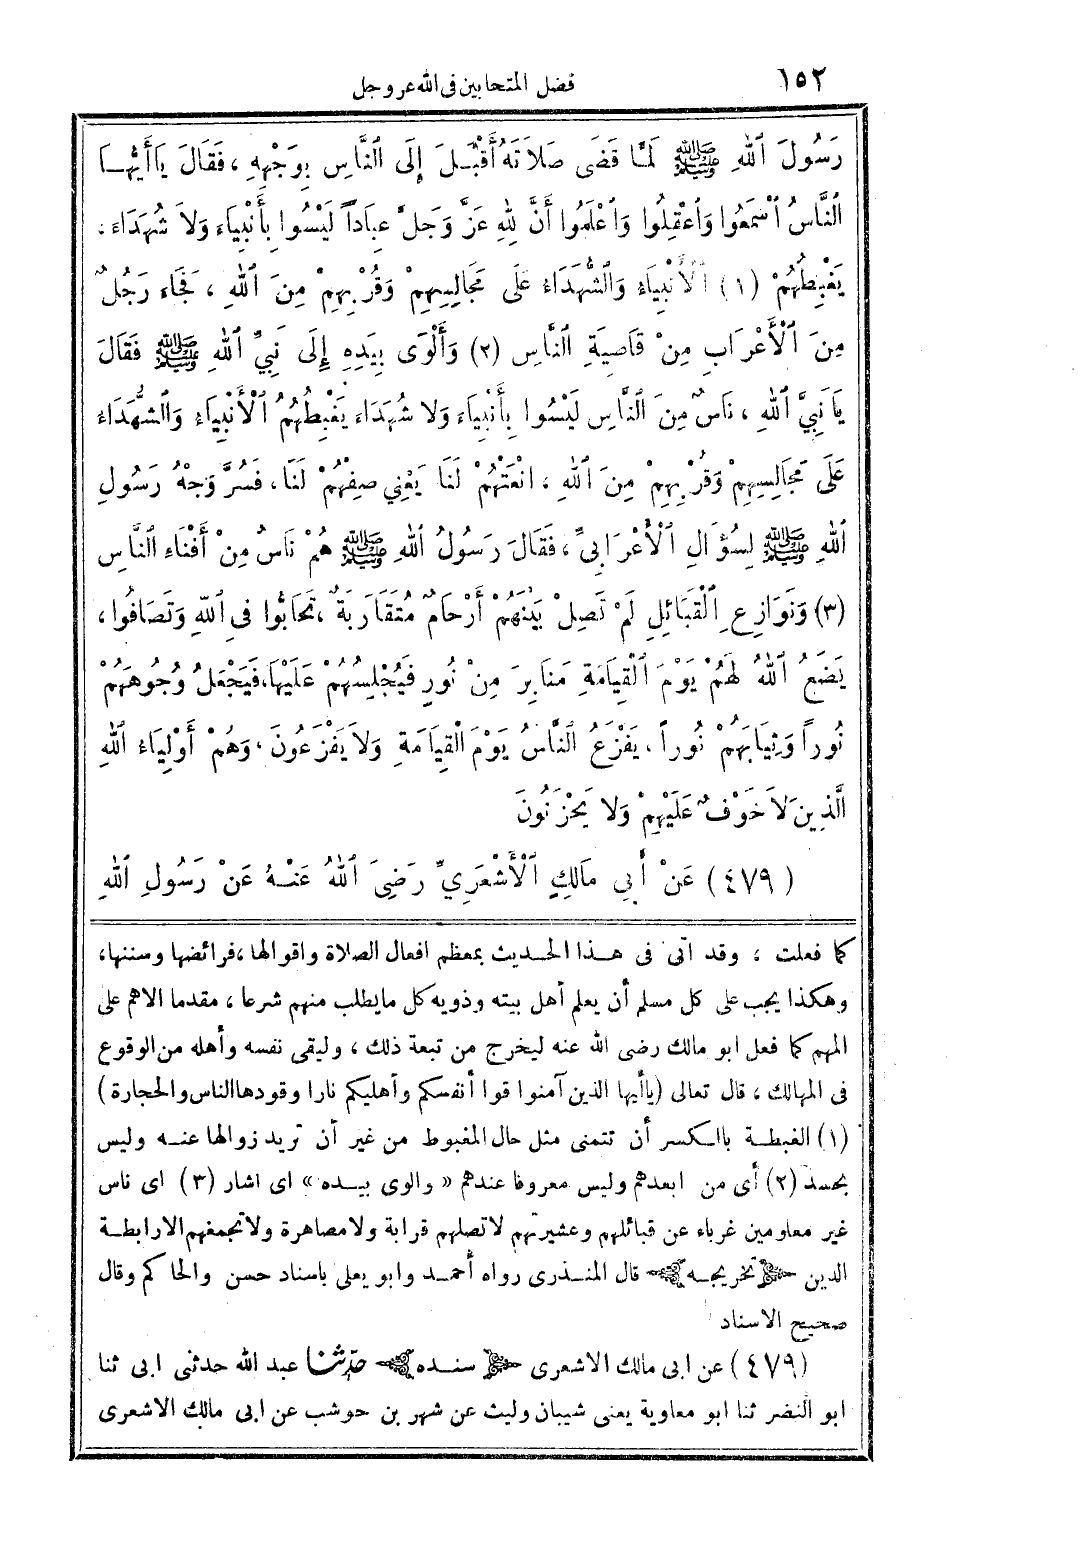 ١٥٢
فضل المتحابين فى الله عز وجل
رَسُولَ ٱللهِ ﷺ لَمَّا قَضَى صَلَاتَهُ أَقْبَلَ إِلَى ٱلنَّاسِ بِوَجْهِهِ ، فَقَالَ يَاأَيُّهَا
ٱلنَّاسُ ٱسْمَعُوا وَٱعْقِلُوا وَٱعْلَمُوا أَنَّ لِلهِ عَزَّ وَجَلَّ عِبَاداً لَيْسُوا بِأَنْبِيَاءَ وَلاَ شُهَدَاءَ ،
يَغْبِطُهُمْ (١) ٱلْأَنْبِيَاءُ وَٱلشُّهَدَاءُ عَلَى مَجَالِسِهِمْ وَقُرْبِهِمْ مِنَ ٱللهِ ، فَجَاءَ رَجُلٌ
مِنَ ٱلْأَعْرَابِ مِنْ قَاصِيَةِ ٱلنَّاسِ (٢) وَأَلْوَى بِيَدِهِ إِلَى نَبِيِّ ٱللهِ ﷺ فَقَالَ
يَانَبِيَّ ٱللهِ ، نَاسٌ مِنَ ٱلنَّاسِ لَيْسُوا بِأَنْبِيَاءَ وَلَا شُهَدَاءَ يَغْبِطُهُمُ ٱلْأَنْبِيَاءُ وَٱلشُّهَدَاءُ
عَلَى مَجَالِسِهِمْ وَقُرْبِهِمْ مِنَ ٱللهِ ، انْعَتْهُمْ لَنَا يَعْنِي صِفْهُمْ لَنَا ، فَسُرَّ وَجْهُ رَسُولِ
ٱللهِ ﷺ لِسُؤَالِ ٱلْأَعْرَابِيِّ ، فَقَالَ رَسُولُ ٱللهِ ﷺ هُمْ نَاسٌ مِنْ أَفْنَاءِ ٱلنَّاسِ
(٣) وَنَوَازِعِ ٱلْقَبَائِلِ لَمْ تَصِلْ بَيْنَهُمْ أَرْحَامٌ مُتَقَارِبَةٌ ، تَحَابُّوا فِى ٱللهِ وَتَصَافُوا ،
يَضَعُ ٱللهُ لَهُمْ يَوْمَ ٱلْقِيَامَةِ مَنَابِرَ مِنْ نُورٍ فَيُجْلِسُهُمْ عَلَيْهَا، فَيَجْعَلُ وُجُوهَهُمْ
نُوراً وَثِيَابَهُمْ نُوراً ، يَفْزَعُ ٱلنَّاسُ يَوْمَ ٱلْقِيَامَةِ وَلَا يَفْزَعُونَ ، وَهُمْ أَوْلِيَاءُ ٱللهِ
الَّذِينَ لَا خَوْفٌ عَلَيْهِمْ وَلَا يَحْزَنُونَ
(٤٧٩) عَنْ أَبِي مَالِكٍ ٱلْأَشْعَرِيِّ رَضِيَ ٱللهُ عَنْهُ عَنْ رَسُولِ ٱللهِ
كما فعلت ، وقد اتى فى هذا الحديث بمعظم افعال الصلاة واقوالها ،فرائضها وسننها،
وهكذا يجب على كل مسلم أن يعلم أهل بيته وذويه كل مايطلب منهم شرعا ، مقدما الاهم على
المهم كما فعل ابو مالك رضى الله عنه ليخرج من تبعة ذلك ، وليقى نفسه وأهله من الوقوع
فى المهالك ، قال تعالى (ياأيها الذين آمنوا قوا أنفسكم وأهليكم نارا وقودها الناس والحجارة)
(١) الغبطة باالكسر أن تتمنى مثل حال المغبوط من غير أن تريد زوالها عنه وليس
بحسد (٢) أى من ابعدهم وليس معروفا عندهم « والوى بيده » اى اشار (٣) اى ناس
غير معاومين غرباء عن قبائلهم وعشيرتهم لاتصلهم قرابة ولا مصاهرة ولا تجمعهم الا رابطة
الدين ﴿ تخريجه ﴾ قال المنذرى رواه أحمد وابو يعلى باسناد حسن والحاكم وقال
صحيح الاسناد
(٤٧٩) عن ابى مالك الاشعرى ﴿ سنده ﴾ حدثنا عبد الله حدثنى ابى ثنا
ابو النضر ثنا ابو معاوية يعنى شيبان وليث عن شهر بن حوشب عن ابى مالك الاشعرى